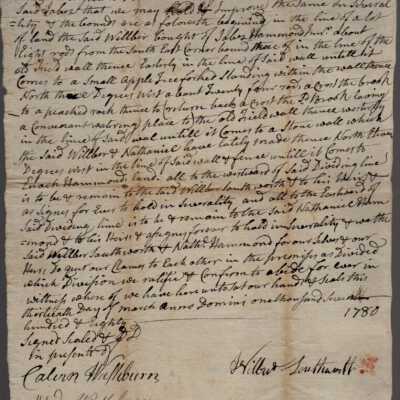 Said Labor that we may hold & Improve the Same in Several
ity & the bounds are as followeth begining in the line of a lot
of land the Said Willber bought of Jabez Hammond Junr about
Eight rods from the South East Corner bound thence in the line of the
old field wall thence Easterly in the line of Said wall untill it
Comes to a Small Apple tree forked Standing within the wall thence
North three Degrees West about Twenty four rods a Crost the brook
to a peached rock thence to return back a Crost the Sd Brook leaving
a Convenant watering place to the old field wall thence westerly
in the line of Said wall untill it comes to a Stone wall which
the Said Wilber & Nathaniel have lately made thence North three
Degrees west in the line of Said wall & fense untill it Comes to
Enoch Hammonds land, all to the westward of Said Dividing line
is to be & remain to the Said Willber Southworth & to his Heirs &
as Signes for Ever to hold in Severality and all to the Eastward of
Said Dividing line is to be & remain to the Said Nathaniel Ham
mond & to his Heirs & assignes forever to hold in Severality & we the
Said Wilber Southworth & Nathll Hammond for our Selves & our
Heirs do quit our Claims to Each other in the premises as divided
which Division we ratifie & Confirm to abide for ever in
witness whereof we have hereunto set our hands & Seals this
thirtieth Day of march Anno Domini one thousand Seven
hundred & Eighty 1780
Signed Sealed & DD
In presents of
Calvin Washburn Wilber Southworth